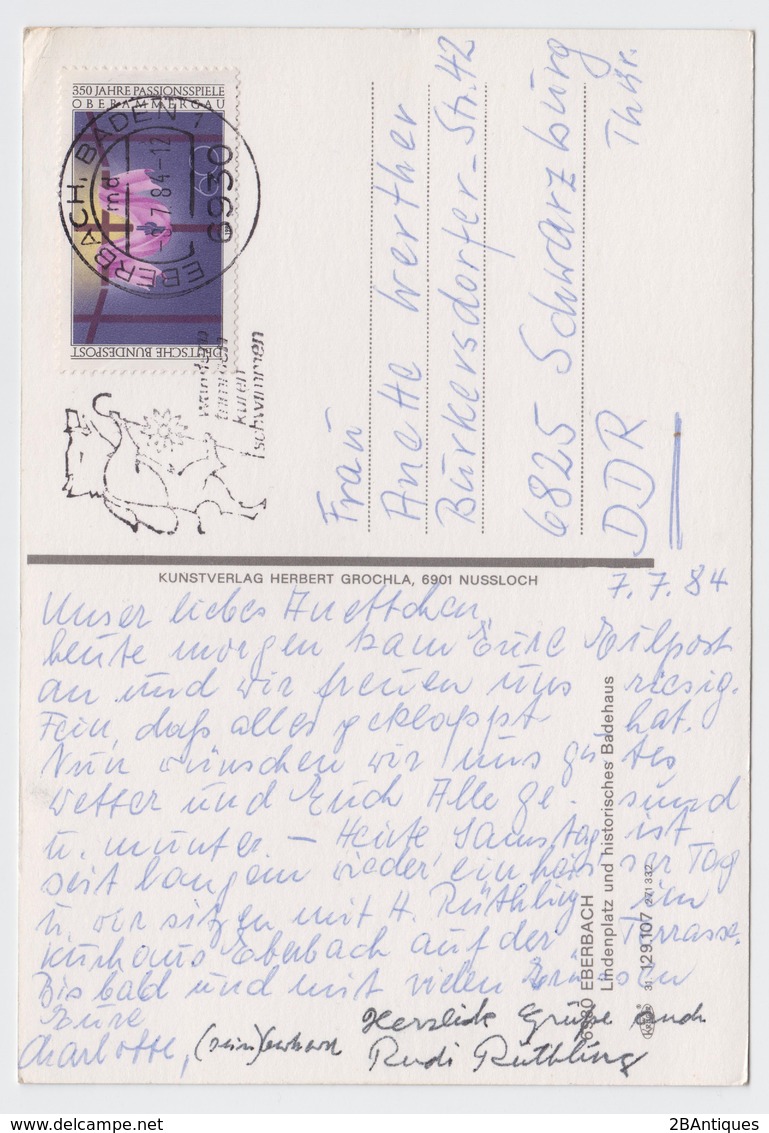 350 JAHRE PASSIONSSPIELE
OBERAMMERGAU
DEUTSCHE BUNDESPOST
EBERBACH, BADEN 1
6930
md
-9.7.84-12
EBERBACH
wandern
kuren
schwimmen
Frau
Anette Werther
Burkersdorfer-Str. 42
6825 Schwarzburg
Thür.
DDR
KUNSTVERLAG HERBERT GROCHLA, 6901 NUSSLOCH
7.7.84
Unser liebes Anettchen,
heute morgen kam Eure Eilpost
an und wir freuen uns riesig.
Fein, daß alles geklappt hat.
Nun wünschen wir uns gutes
Wetter und Euch Alle gesund
u. munter. – Heute Samstag ist
seit langem wieder ein heisser Tag
u. wir sitzen mit H. Rüthling im
Kurhaus Eberbach auf der Terrasse.
Bis bald und mit vielen Grüssen
Eure
Charlotte,
Herzliche Grüße auch
Rudi Rüthling
6930 EBERBACH
Lindenplatz und historisches Badehaus
31 129.107 271 332
2BAntiques